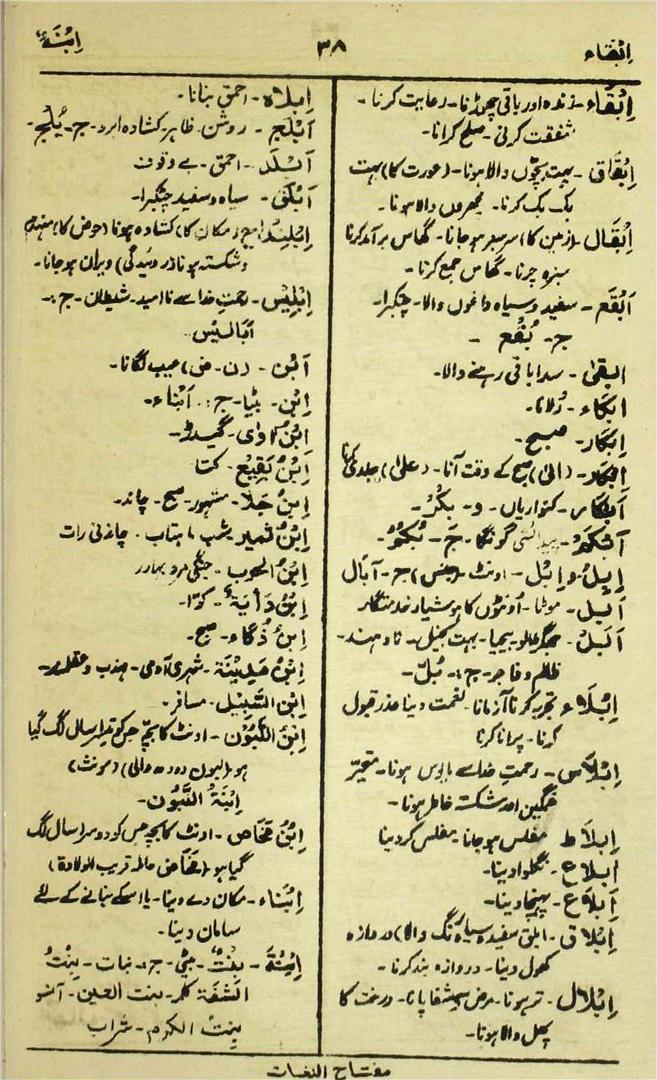 اِبْقَاء
۳۸
اِبْنَةٌ
اِبْقَاء - زندہ اور باقی چھوڑنا - رعایت کرنا -
شفقت کرنی - صلح کرانا -
اِبْقَاق - بہت بچّوں والا ہونا - (عورت کا) بہت
بک بک کرنا - مچھروں والا ہونا -
اِبْقَال - (زمین کا) سرسبز ہو جانا - گھاس برآمد کرنا
سبزہ چرنا - گھاس جمع کرنا -
اَبْقَع - سفید و سیاہ داغوں والا - چتکبرا -
ج - بُقْع -
ابقیٰ - سدا باقی رہنے والا -
ابکَاء - رُلانا -
اِبْکَار - صبح -
اِبْکَار - (الیٰ) صبح کے وقت آنا - (علیٰ) جلدی کرنا
اَبْکَار - کنواریاں - و - بِکْرٌ -
اَبْکَمُ - پیدائشی گونگا - ج - بُکْمٌ -
اِبِلٌ و اِبْل - اونٹ - (جنس) ج - آبَال
اَبِیل - موٹا - اُونٹوں کا ہوشیار خدمتگار
اَبَلّ - جھگڑالو بیحیا - بہت بخیل - نادہند -
ظالم و فاجر - ج : بُلّ -
اِبْلَاء - تجربہ کرنا آزمانا - نعمت دینا عذر قبول
کرنا - پرانا کرنا
اِبْلَاس - رحمتِ خدا سے مایوس ہونا - متحیّر
غمگین اور شکستہ خاطر ہونا -
اِبلَاط - مفلس ہو جانا - مفلس کر دینا
اِبلَاع - نگلوا دینا -
اِبلَاغ - پہنچا دینا -
اِبْلَاق - ابلق سفید و سیاہ رنگ والا) دروازہ
کھول دینا - دروازہ بند کرنا -
اِبْلَال - تر ہونا - مرض سے شفا پانا - درخت کا
پھل والا ہونا -
اِبلَاہ - احمق بنانا -
اَبْلَج - روشن - ظاہر - کشادہ ابرو - ج - بُلْج -
اَبْلَد - احمق - بے وقوف
اَبْلَق - سیاہ و سفید چتکبرا -
مکان کا) کشادہ ہونا (حوض کا) منہدم
و شکستہ ہونا ویران ہو جانا -
اِبْلِیْس - رحمتِ خدا سے نا امید - شیطان - ج :-
اَبَالِیْس
اَبْن - (ن - ض) عیب لگانا -
اِبْن - بیٹا - ج :- اَبْنَاء -
اِبْنُ آوٰی - گیدڑ -
اِبْنُ بَقِیْع - کتا
اِبنُ جَلَا - مشہور - صبح - چاند -
اِبْنُ قمیر شبِ ماہتاب - چاندنی رات
اِبْنُ الحرب - جنگی مرد بہادر
اِبْنُ دَأیَۃ - کوّا -
اِبنُ ذُکَاء - صبح -
اِبْنُ مَدِیْنَة - شہری آدمی - مہذب و عقلمند -
اِبْنُ السَّبِیْل - مسافر -
اِبْنُ اللَّبُوْن - اونٹ کا بچّہ جس کو تیسرا سال لگ گیا
ہو (لبون دودھ والی) (مونث)
اِبْنَةُ اللَّبُوْن -
اِبْنُ مَخَاض - اونٹ کا بچہ جس کو دوسرا سال لگ
گیا ہو (مَخَاض حاملہ قریب الولادۃ)
اِبْنَاء - مکان دے دینا - یا اسکے بنانے کے لئے
سامان دینا -
اِبْنَة - بِنْتٌ - بیٹی - ج :- بنات - بِنْتُ
الشَّفَة کلمہ - بنت العین - آنسو
بِنتُ الکرم - شراب
مفتاح اللغات